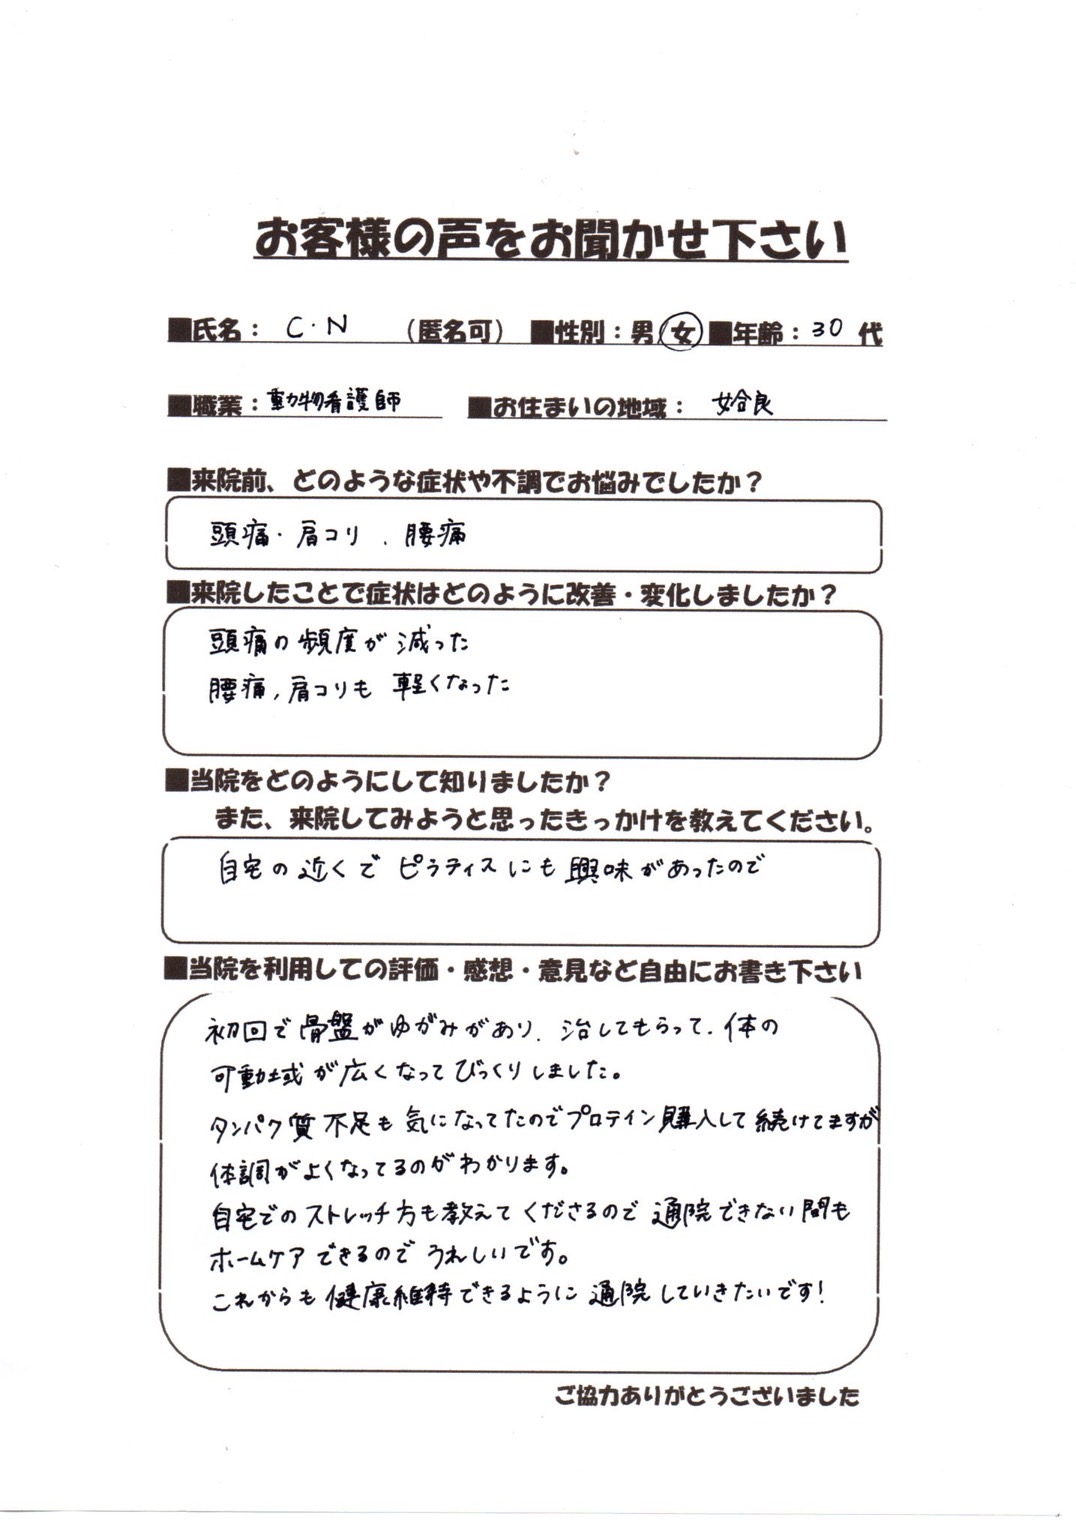 お客様の声をお聞かせ下さい
■氏名： C・N （匿名可） ■性別：男/女 ■年齢：30代
■職業：動物看護師 ■お住まいの地域： 姶良
■来院前、どのような症状や不調でお悩みでしたか？
頭痛・肩コリ、腰痛
■来院したことで症状はどのように改善・変化しましたか？
頭痛の頻度が減った
腰痛，肩コリも 軽くなった
■当院をどのようにして知りましたか？
また、来院してみようと思ったきっかけを教えてください。
自宅の近くで ピラティスにも興味があったので
■当院を利用しての評価・感想・意見など自由にお書き下さい
初回で骨盤がゆがみがあり、治してもらって、体の
可動域が広くなってびっくりしました。
タンパク質不足も気になってたのでプロテイン購入して続けてますが
体調がよくなってるのがわかります。
自宅でのストレッチ方も教えてくださるので通院できない間も
ホームケアできるのでうれしいです。
これからも健康維持できるように通院していきたいです！
ご協力ありがとうございました